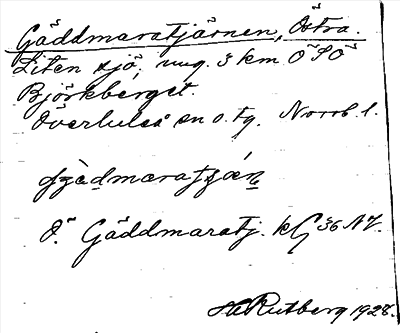 Gäddmaratjärnen, Östra.
Liten sjö, ung. 3 km Ö SÖ
Björkberget.
Överluleå sn o. tg. Norrb. l.
Ö. Gäddmaratj. kG 36 NV.
HRutberg 1928.